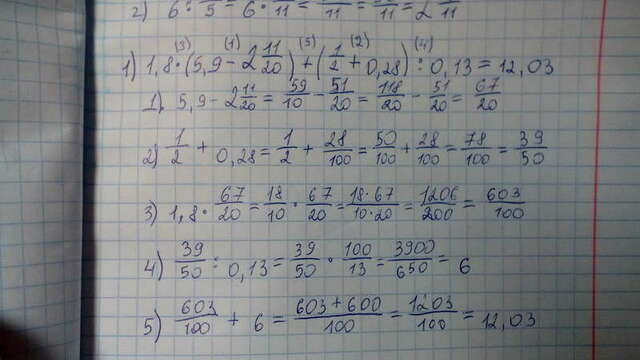 2) 6 : /5 = 6 · /11 = /11 = /11 = 2 /11
(3) (1) (5) (2) (4)
1) 1,8 · (5,9 - 2 11/20) + (1/2 + 0,28) : 0,13 = 12,03
1) 5,9 - 2 11/20 = 59/10 - 51/20 = 118/20 - 51/20 = 67/20
2) 1/2 + 0,28 = 1/2 + 28/100 = 50/100 + 28/100 = 78/100 = 39/50
3) 1,8 · 67/20 = 18/10 · 67/20 = 18·67/10·20 = 1206/200 = 603/100
4) 39/50 : 0,13 = 39/50 · 100/13 = 3900/650 = 6
5) 603/100 + 6 = 603+600/100 = 1203/100 = 12,03